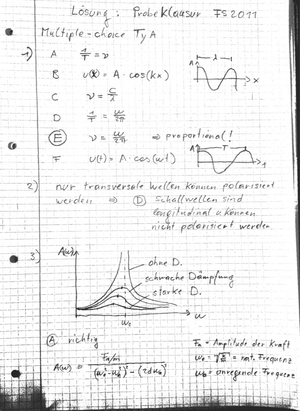 Lösung: Probeklausur FS2011
Multiple-choice Typ A
1) A 1/T = ν
B u(x) = A · cos(kx)
C ν = c/λ
D 1/T = ω/2π
E ν = ω/2π ⇒ proportional!
F u(t) = A · cos(ωt)
A λ x
A T t
2) nur transversale Wellen können polarisiert
werden ⇒ D Schallwellen sind
longitudinal u. können
nicht polarisiert werden
3) A(ω)
ohne D.
schwache Dämpfung
starke D.
ω₀ ω
A richtig
Fₐ = Amplitude der Kraft
ω₀ = = nat. Frequenz
= anregende Frequenz